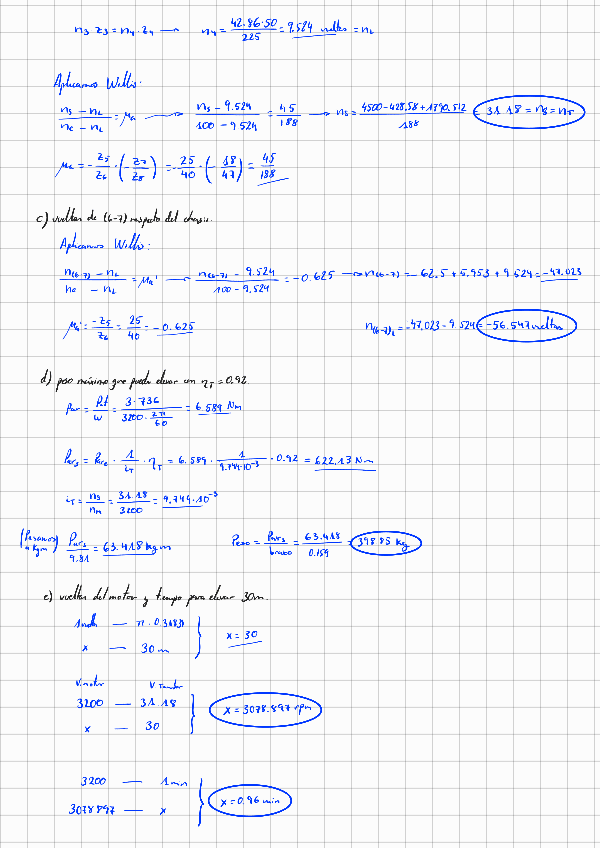 n3 z3 = n4 · z4 → n4 = 42.86·50 / 225 = 9.524 vueltas = nL
Aplicamos Willis:
n5 − nL / nc − nL = μa → n5 − 9.524 / 100 − 9.524 = 45 / 188 → n5 = 4500 − 428.58 + 1790.512 / 188 = 31.18 = n5 = nT
μa = − z5 / z6 · (− z7 / z8) = − 25 / 40 · (− 18 / 47) = 45 / 188
c) vueltas de (6-7) respecto del chasis.
Aplicamos Willis:
n(6-7) − nL / nc − nL = μa' → n(6-7) − 9.524 / 100 − 9.524 = −0.625 → n(6-7) = −62.5 + 5.953 + 9.524 = −47.023
μa' = −z5 / z6 = 25 / 40 = −0.625
n(6-7)L = −47.023 − 9.524 = −56.547 vueltas
d) peso máximo que puede elevar con ηT = 0.92.
Par = Pot / w = 3·736 / 3200 · 2π / 60 = 6.589 Nm
Pars = Pare · 1 / iT · ηT = 6.589 · 1 / 9.744·10⁻³ · 0.92 = 622.13 Nm
iT = ns / nm = 31.18 / 3200 = 9.744·10⁻³
(Pasamos a kgm) Pars / 9.81 = 63.418 kg·m
Peso = Pars / brazo = 63.418 / 0.159 = 398.85 kg
e) vueltas del motor y tiempo para elevar 30m.
1 vuelta — π · 0.31831
x — 30 m
x = 30
V. motor V Tambor
3200 — 31.18
x — 30
x = 3078.897 rpm
3200 — 1 min
3078.897 — x
x = 0.96 min